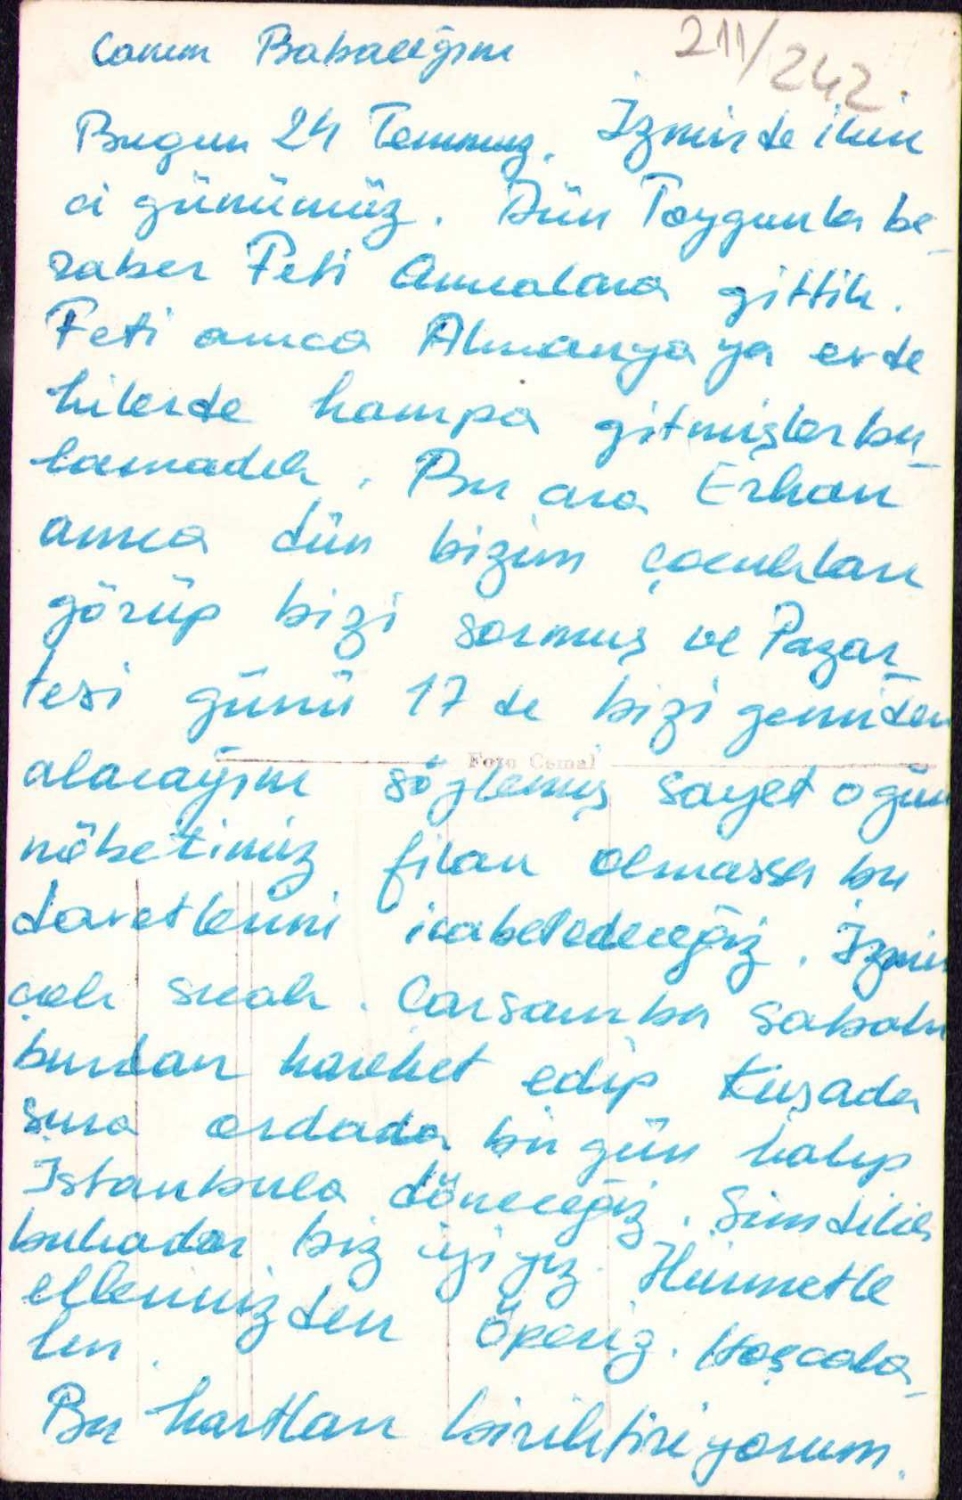 Canım Babacığım
211/242
Bugün 24 Temmuz. İzmirde ikin
ci günümüz. Dün Toygunla be_
raber Feti Amcalara gittik.
Feti amca Almanya ya evde
kilerde kampa gitmişler bu_
lamadık. Bu ara Erkan
amca dün bizim çocukları
görüp bizi sormuş ve Pazar_
tesi günü 17 de bizi gemiden
Foto Cemal
alacağını söylemiş şayet o gün
nöbetimiz filan olmassa bu
davetlerini icabet edeceğiz. İzmir
çok sıcak. Carsamba sabahı
burdan hareket edip Kuşada
sına ordada bir gün kalıp
İstanbula döneceğiz. Simdilik
bukadar biz iyi yiz. Hürmetle
ellerinizden Öperiz. Hoşcaka_
lın.
Bu kartları biriktiriyorum.